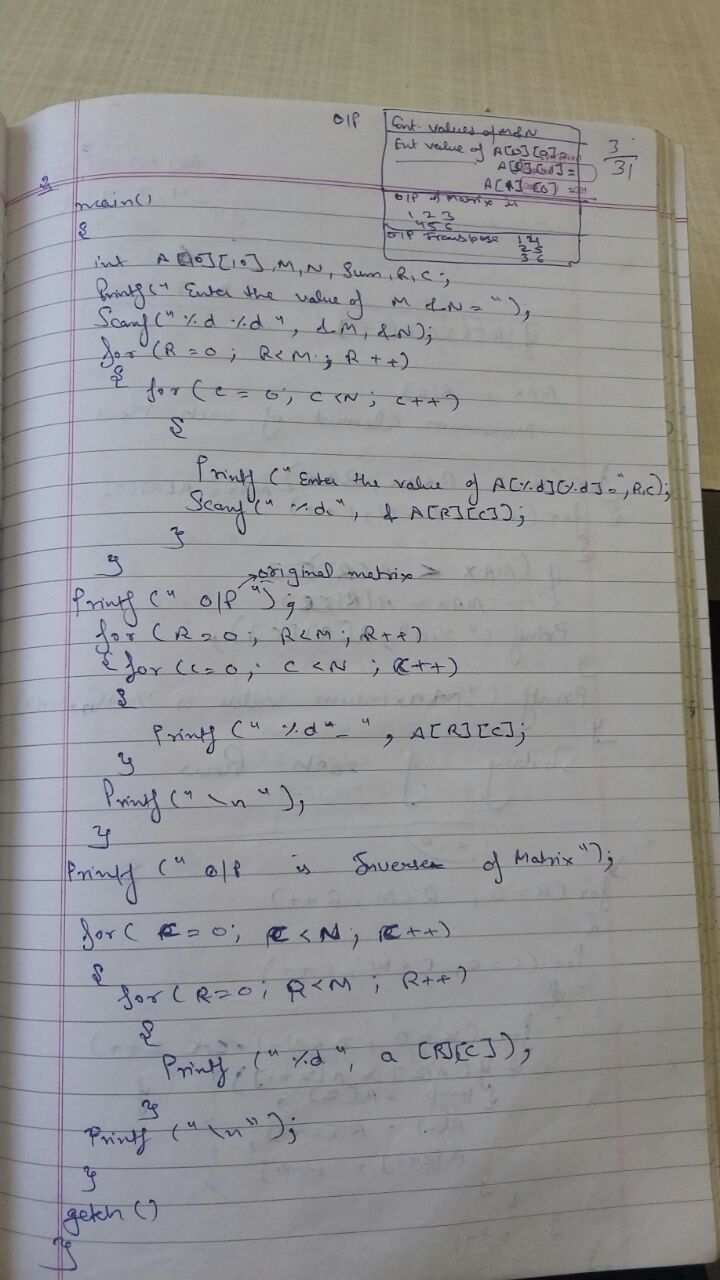 O/P
Ent. values of M&N
Ent value of A[0][0]=
A[0][1]=
A[1][0]=
O/P of matrix
1 2 3
4 5 6
O/P Transpose
1 4
2 5
3 6
3/31
2
main()
{
int A[10][10], M, N, Sum, R, C;
Printf(" Enter the value of M & N = "),
Scanf("%d %d", &M, &N);
for (R = 0 ; R<M ; R++)
{ for (C = 0; C<N ; C++)
{
Printf ("Enter the value of A[%d][%d]=", R,C);
Scanf(" %d", & A[R][C]);
}
}
original matrix
Printf (" O/P ");
for (R=0 ; R<M ; R++)
{ for (C=0; C<N ; C++)
{
Printf (" %d"_", A[R][C];
}
Printf(" \n ");
}
Printf (" O/P is Inverse of Matrix");
for( C=0; C<N; C++)
{
for (R=0; R<M ; R++)
{
Printf ("%d", a [R][C]);
}
Printf ("\n");
}
getch ()
}